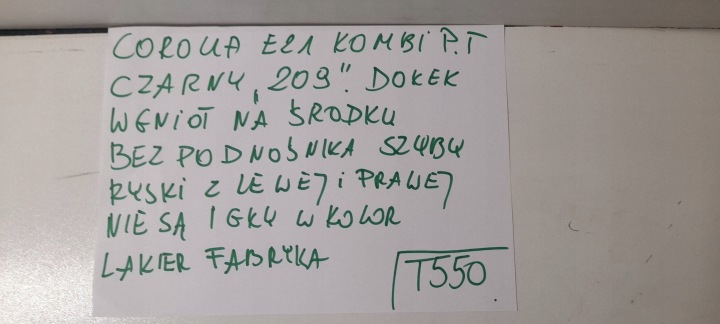 COROLLA E21 KOMBI P.T
CZARNY „209". DOKEK
WGNIOT NA ŚRODKU
BEZ PODNOŚNIKA SZYBY
RYSKI Z LEWEJ i PRAWEJ
NIE SĄ IGŁY W KOLOR
LAKIER FABRYKA
T550.